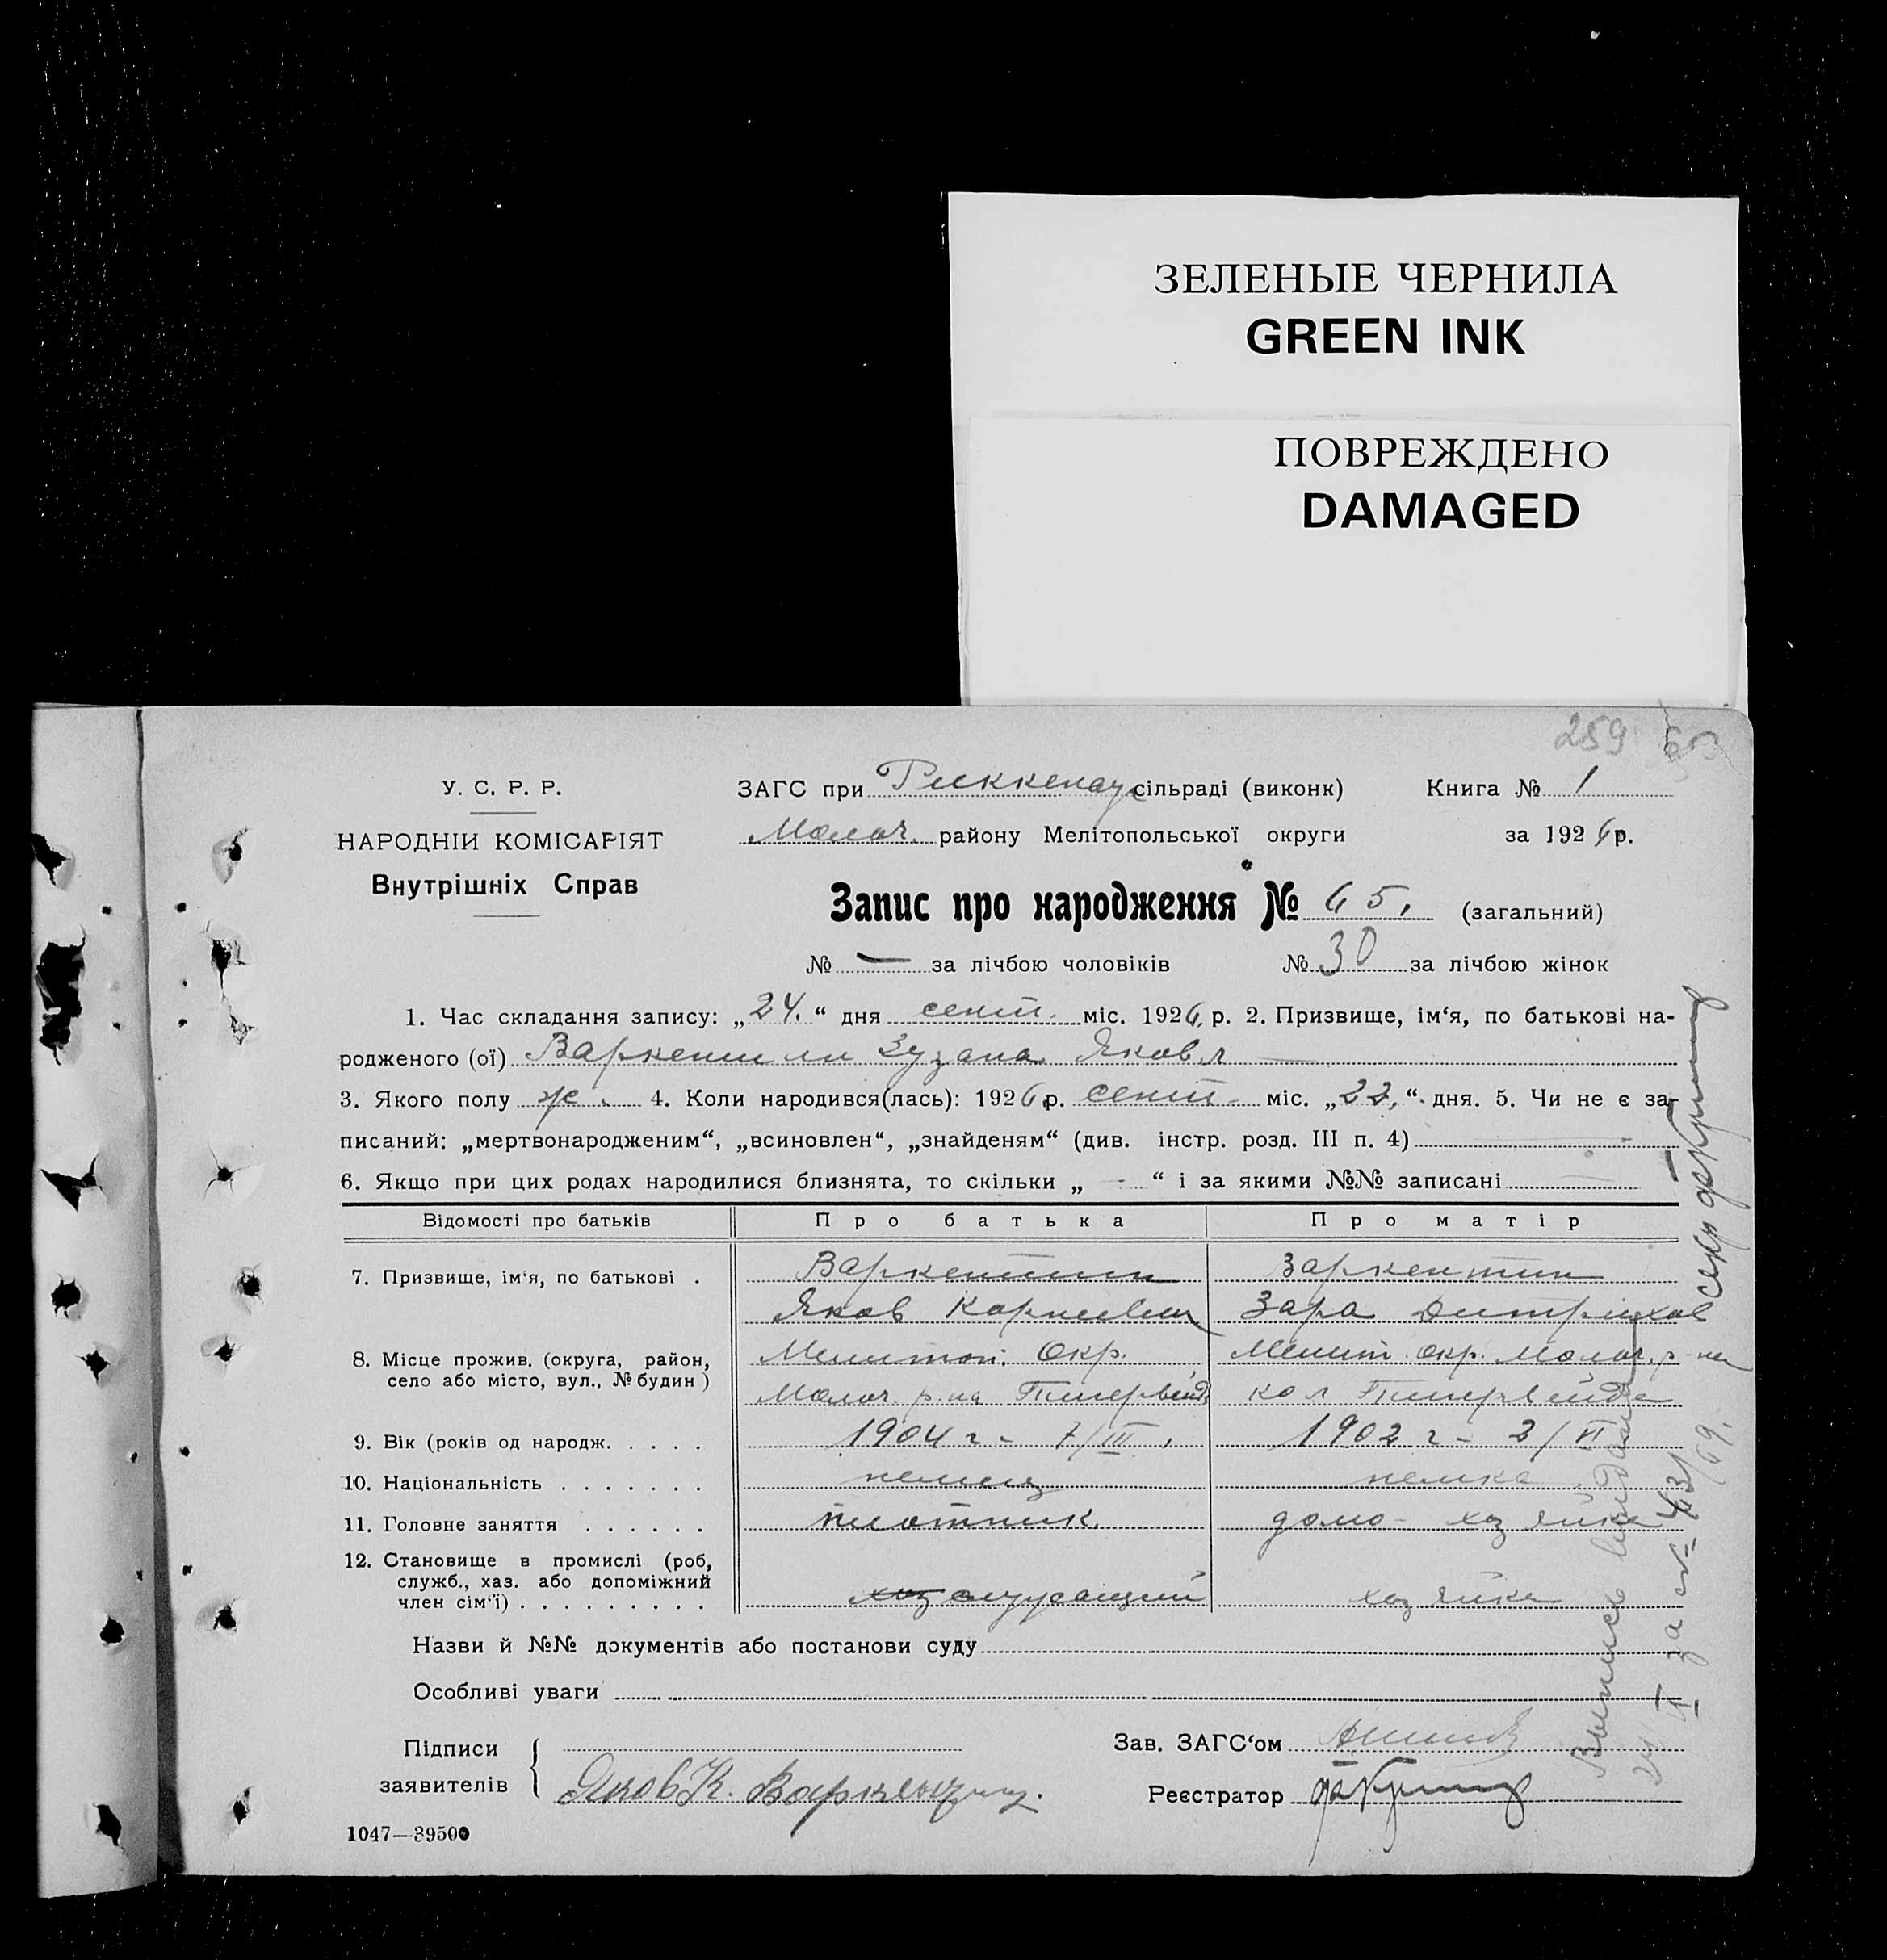 ЗЕЛЕНЫЕ ЧЕРНИЛА
GREEN INK
ПОВРЕЖДЕНО
DAMAGED
259
У. С. Р. Р.
НАРОДНІЙ КОМІСАРІЯТ
Внутрішніх Справ
ЗАГС при Риккенау сільраді (виконк) Книга № 1
Молоч. району Мелітопольської округи за 1926 р.
Запис про народження № 65. (загальний)
№ — за лічбою чоловіків № 30 за лічбою жінок
1. Час складання запису: „24.“ дня сент. міс. 1926 р. 2. Призвище, ім‘я, по батькові на-
родженого (ої) Варкентин Зузана Яковл
3. Якого полу ж. 4. Коли народився(лась): 1926 р. сент. міс. „22,“ дня. 5. Чи не є за-
писаний: „мертвонародженим“, „всиновлен“, „знайденям“ (див. інстр. розд. III п. 4)
6. Якщо при цих родах народилися близнята, то скільки „ - “ і за якими №№ записані
Відомості про батьків Про батька Про матір
7. Призвище, ім‘я, по батькові . Варкентин Заркентин
Яков Корниевич Зара Дитрихов
8. Місце прожив. (округа, район, Мелитоп. Окр. Мелит. окр. Молоч. р-на
село або місто, вул., № будин) Молоч р-на Тигервейде кол Тигервейде
9. Вік (років од народж. . . . . 1904 г - 7/III, 1902 г - 2/VI
10. Національність . . . . . . . немец немка
11. Головне заняття . . . . . . плотник. домо- хозяйка
12. Становище в промислі (роб,
служб., хаз. або допоміжний
член сім‘ї) . . . . . . . . . хоз служащий хозяйка
Назви й №№ документів або постанови суду
Особливі уваги
Підписи Зав. ЗАГС‘ом
заявителів Яков К. Варкентин. Реєстратор
1047—39500
Выпись выдана
за № 431